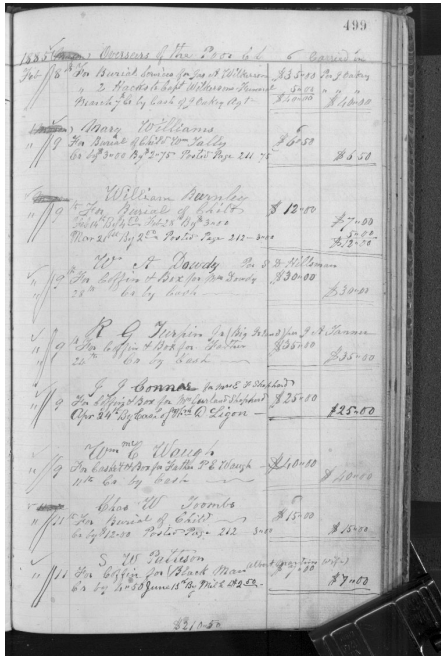 499
1885 Overseers of the Poor Cr
Feb 8th For Burial Services for Jas A Wilkerson $35=00 Per J Oakey
" 2 Hacks to Capt Wilkersons Funeral 5=00 " " "
March 7th By Cash of J Oakey Agt $40=00 $40=00
Mary Williams
" 9 For Burial of Child Wm Tally $6=50
Cr by $3=00 By $2=75 Posted Page 211 .75 $6.50
William Burnley
" 9th For Burial of Child $12=00
$7=00
Mar 21st By 2 Posted Page 212 - 3=00 5=00
$12=00
Wm A Dowdy Per S D Hillsman
" 9th For Coffin & Box for Mrs Dowdy $30=00
28th Cr by Cash $30=00
R G Turpin per J A Tanner
" 9th For Coffin & Box for Father $35=00
26th Cr by Cash $35=00
J J Connor for Mrs E H Shepherd
" 9 For Coffin & Box for Mrs Shepherd $25=00
Apr 24th By Cash of D. Ligon $25=00
Wm McC Waugh
" 9 For Casket & Box for Father P. E Waugh $40=00
11th Cr by Cash $40=00
Chas W Toombs
" 11th For Burial of Child $15=00
Cr by 12=00 Posted Page 212 3=00 $15=00
S W Pattison
" 11 For Coffin for Black Man $7=00
Cr by 4=50 June 15th By 2.50 $7=00
$210=50